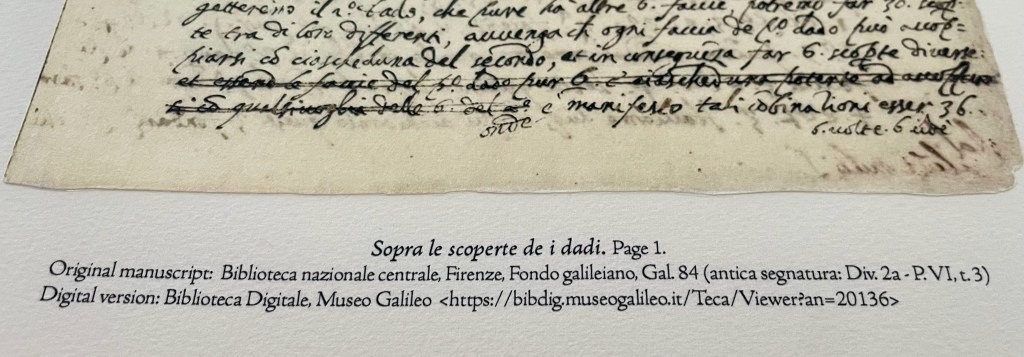 getteremo il 2º dado, che pure ha altre 6. faccie, potremo far scop-
te tra di loro differenti, avvenga ch ogni faccia de pº dado può accop-
piarsi cõ ciascheduna del secondo, et in conseguẽza far 6. scopte diverse:
et essend le faccie del pº dado pur 6. e ciascheduna potente ad
cõ qualsivoglia delle 6. del 2º è manifesto tali cõbinationi esser 36.
onde 6. volte. 6
Sopra le scoperte de i dadi. Page 1.
Original manuscript: Biblioteca nazionale centrale, Firenze, Fondo galileiano, Gal. 84 (antica segnatura: Div. 2a - P. VI, t. 3)
Digital version: Biblioteca Digitale, Museo Galileo <https://bibdig.museogalileo.it/Teca/Viewer?an=20136>